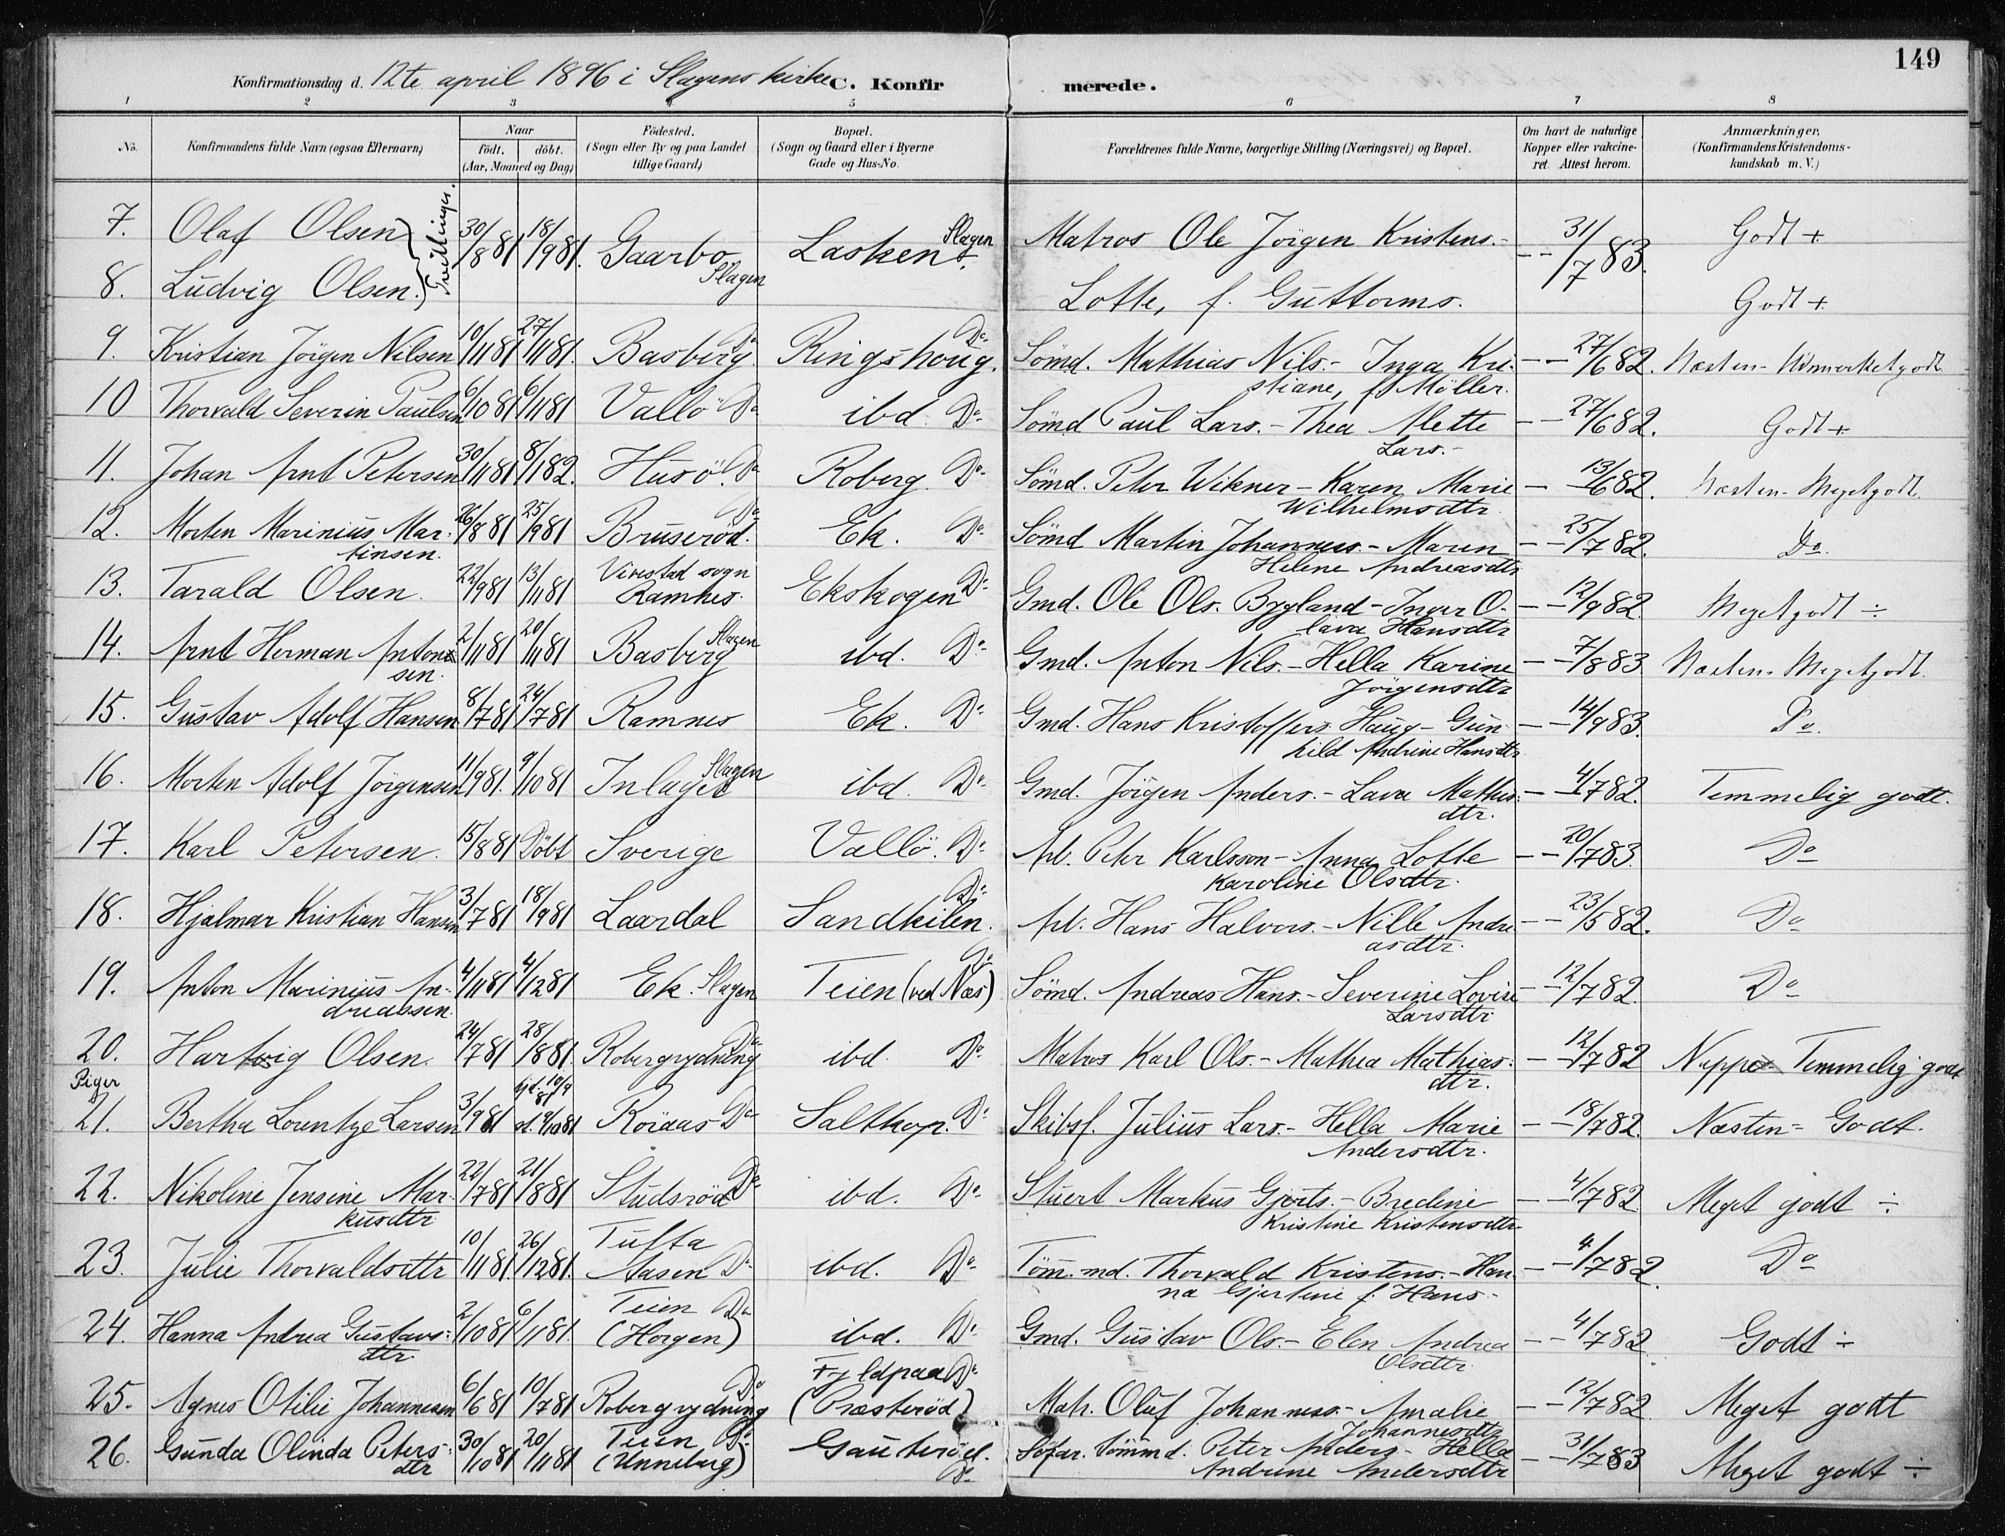 149
Konfirmationsdag d. 12te april 1896 i Slagens kirke C. Konfirmerede.
1 2 3 4 5 6 7 8
No. Konfirmandens fulde Navn (ogsaa Efternavn) Naar født. døbt. (Aar, Maaned og Dag) Fødested. (Sogn eller By og paa Landet tillige Gaard) Bopæl. (Sogn og Gaard eller i Byerne Gade og Hus-No. Forældrenes fulde Navne, borgerlige Stilling (Næringsvei) og Bopæl. Om havt de naturlige Kopper eller vakcineret. Attest herom. Anmærkninger. (Konfirmandens Kristendomskundskab m. V.)
7. Olaf Olsen } Tvillinger. 30/8 81 18/9 81. Gaarbo Slagen Lasken Slagen Matros Ole Jörgen Kristens.- -- 31/7 83. Godt +
8. Ludvig Olsen. } Lotte, f. Guttorms. Godt +
9. Kristian Jörgen Nilsen 10/11 81 27/11 81. Basberg Do Ringshoug. Do Sömd. Mathias Nils.- Inga Kri- -- 27/6 82. Næsten- Udmærketgodt
stiane, f. Möller.
10 Thorvald Severin Paulsen 6/10 81 6/11 81 Vallö Do ibd. Do Sömd Paul Lars.- Thea Alette -- 27/6 82. Godt +
Lars.-
11. Johan Arnt Petersen 30/11 81 8/1 82. Husö. Do Roberg Do Sömd. Peter Wikner- Karen Marie -- 13/6 82. Næsten- Megetgodt
Wilhelmsdtr
12. Morten Marinius Mar- 26/8 81 25/9 81 Bruseröd. Do Ek. Do Sömd Martin Johannes.- Maren -- 25/7 82. Do
tinsen. Helene Andreasdtr
13. Tarald Olsen. 22/9 81 13/11 81 Vivestad sogn Ramnes. Ekskogen Do Gmd. Ole Ols. Bygland- Inger O- -- 12/9 82. Megetgodt ÷
lava Hansdtr
14. Arnt Herman Anton- 2/11 81 20/11 81 Basberg Slagen ibd. Do Gmd. Anton Nils.- Hella Karine -- 7/8 83. Næsten- Megetgodt.
sen. Jörgensdtr
15. Gustav Adolf Hansen 8/7 81 24/7 81 Ramnes Ek. Do Gmd. Hans Kristoffers Haug- Gun- -- 14/9 83. Do.
hild Andrine Hansdtr
16. Morten Adolf Jörgensen 11/9 81. 9/10 81 Inlaget Slagen ibd. Do Gmd. Jörgen Anders.- Lava Mathis- -- 4/7 82. Temmelig godt.
dtr.
17. Karl Petersen. 15/8 81 Döbt Sverige Vallö. Do Arb. Peter Karlsson- Anna Lotte -- 20/7 83. Do
Karoline Olsdtr.
18. Hjalmar Kristian Hansen 3/7 81 18/9 81 Laardal Sandkilen. Do Arb. Hans Halvors.- Nille Andre- -- 23/5 82. Do
asdtr.
19. Anton Marinius An- 4/11 81 4/12 81 Ek. Slagen Teien (ved Næs) Do Sömd. Andreas Hans.- Severine Lovise -- 12/7 82. Do
dreassen. Larsdtr
20. Hartvig Olsen. 24/7 81 28/8 81. Robergrydning Do ibd. Do Matros Karl Ols.- Mathea Mathias- -- 12/7 82 Neppe Temmelig godt
dtr.
Piger
21. Bertha Lorentze Larsen 3/9 81 hjd. 10/9 81 st. 9/10 81 Röraas Do Saltkop. Do Skibsf. Julius Lars.- Hella Marie -- 18/7 82. Næsten- Godt.
Andersdtr.
22. Nikoline Jensine Mar- 22/7 81 21/8 81 Studsröd Do ibd. Do Stuert Markus Gjerts.- Bredine -- 4/7 82. Meget godt ÷
kusdtr Kristine Kristensdtr
23. Julie Thorvaldsdtr 10/11 81 26/12 81. Tufta Aasen Do ibd. Do Töm.md. Thorvald Kristens.- Han- -- 4/7 82. Do
na Gjertine f. Hans-
24. Hanna Andrea Gustavs- 2/10 81 6/11 81. Teien (Horgen) Do ibd. Do Gmd. Gustav Ols.- Elen Andrea -- 4/7 82 Godt ÷
dtr. Olsdtr.
25. Agnes Otilie Johannesen 6/6 81 10/7 81 Robergrydning Do Fyldpaa Do (Præsteröd) Matr. Oluf Johanness.- Amalie -- 12/7 82. Meget godt
Johannesdtr
26. Gunda Olinda Peters- 30/10 81 20/11 81 Teien Do (Unneberg) Gauteröd. Do Sofar. Tömmd. Peter Anders.- Hella -- 31/7 83 Meget godt ÷
dtr Andrine Andersdtr